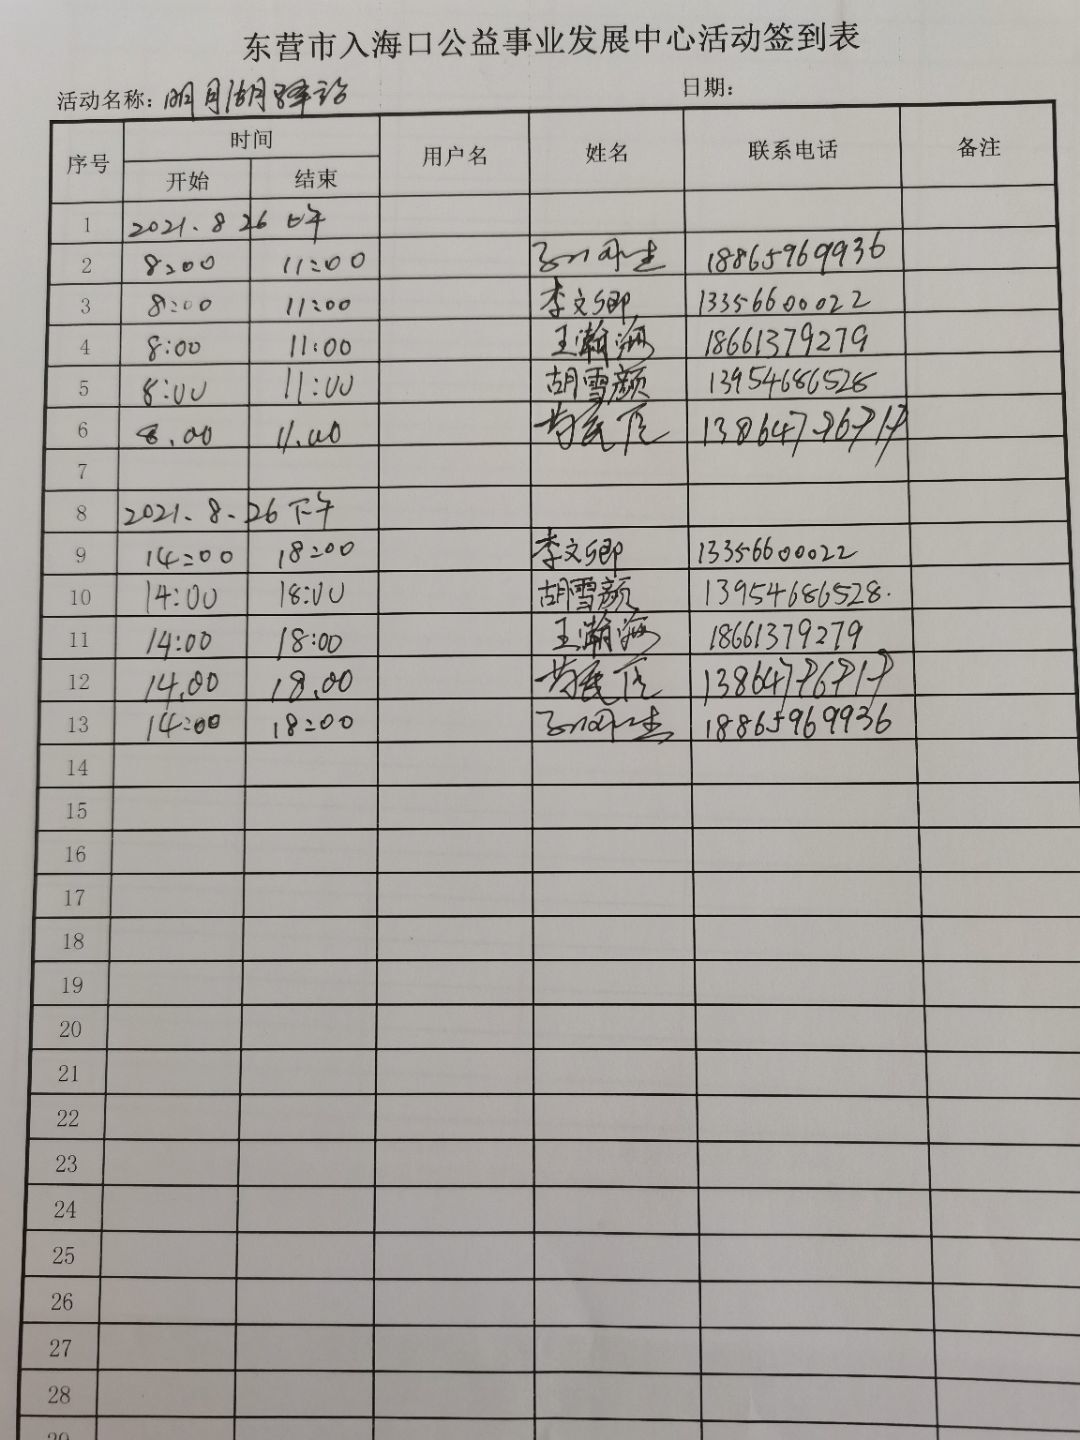 东营市入海口公益事业发展中心活动签到表
活动名称：明月湖驿站 日期：
序号 时间 用户名 姓名 联系电话 备注
开始 结束
1 2021.8 26 上午
2 8:00 11:00 18865969936
3 8:00 11:00 李文卿 13356600022
4 8:00 11:00 王瀚海 18661379279
5 8:00 11:00 胡雪颜 13954686528
6 8.00 11.00 13864796717
7
8 2021.8.26 下午
9 14:00 18:00 李文卿 13356600022
10 14:00 18:00 胡雪颜 13954686528.
11 14:00 18:00 王瀚海 18661379279
12 14.00 18.00 13864796717
13 14:00 18:00 18865969936
14
15
16
17
18
19
20
21
22
23
24
25
26
27
28
29